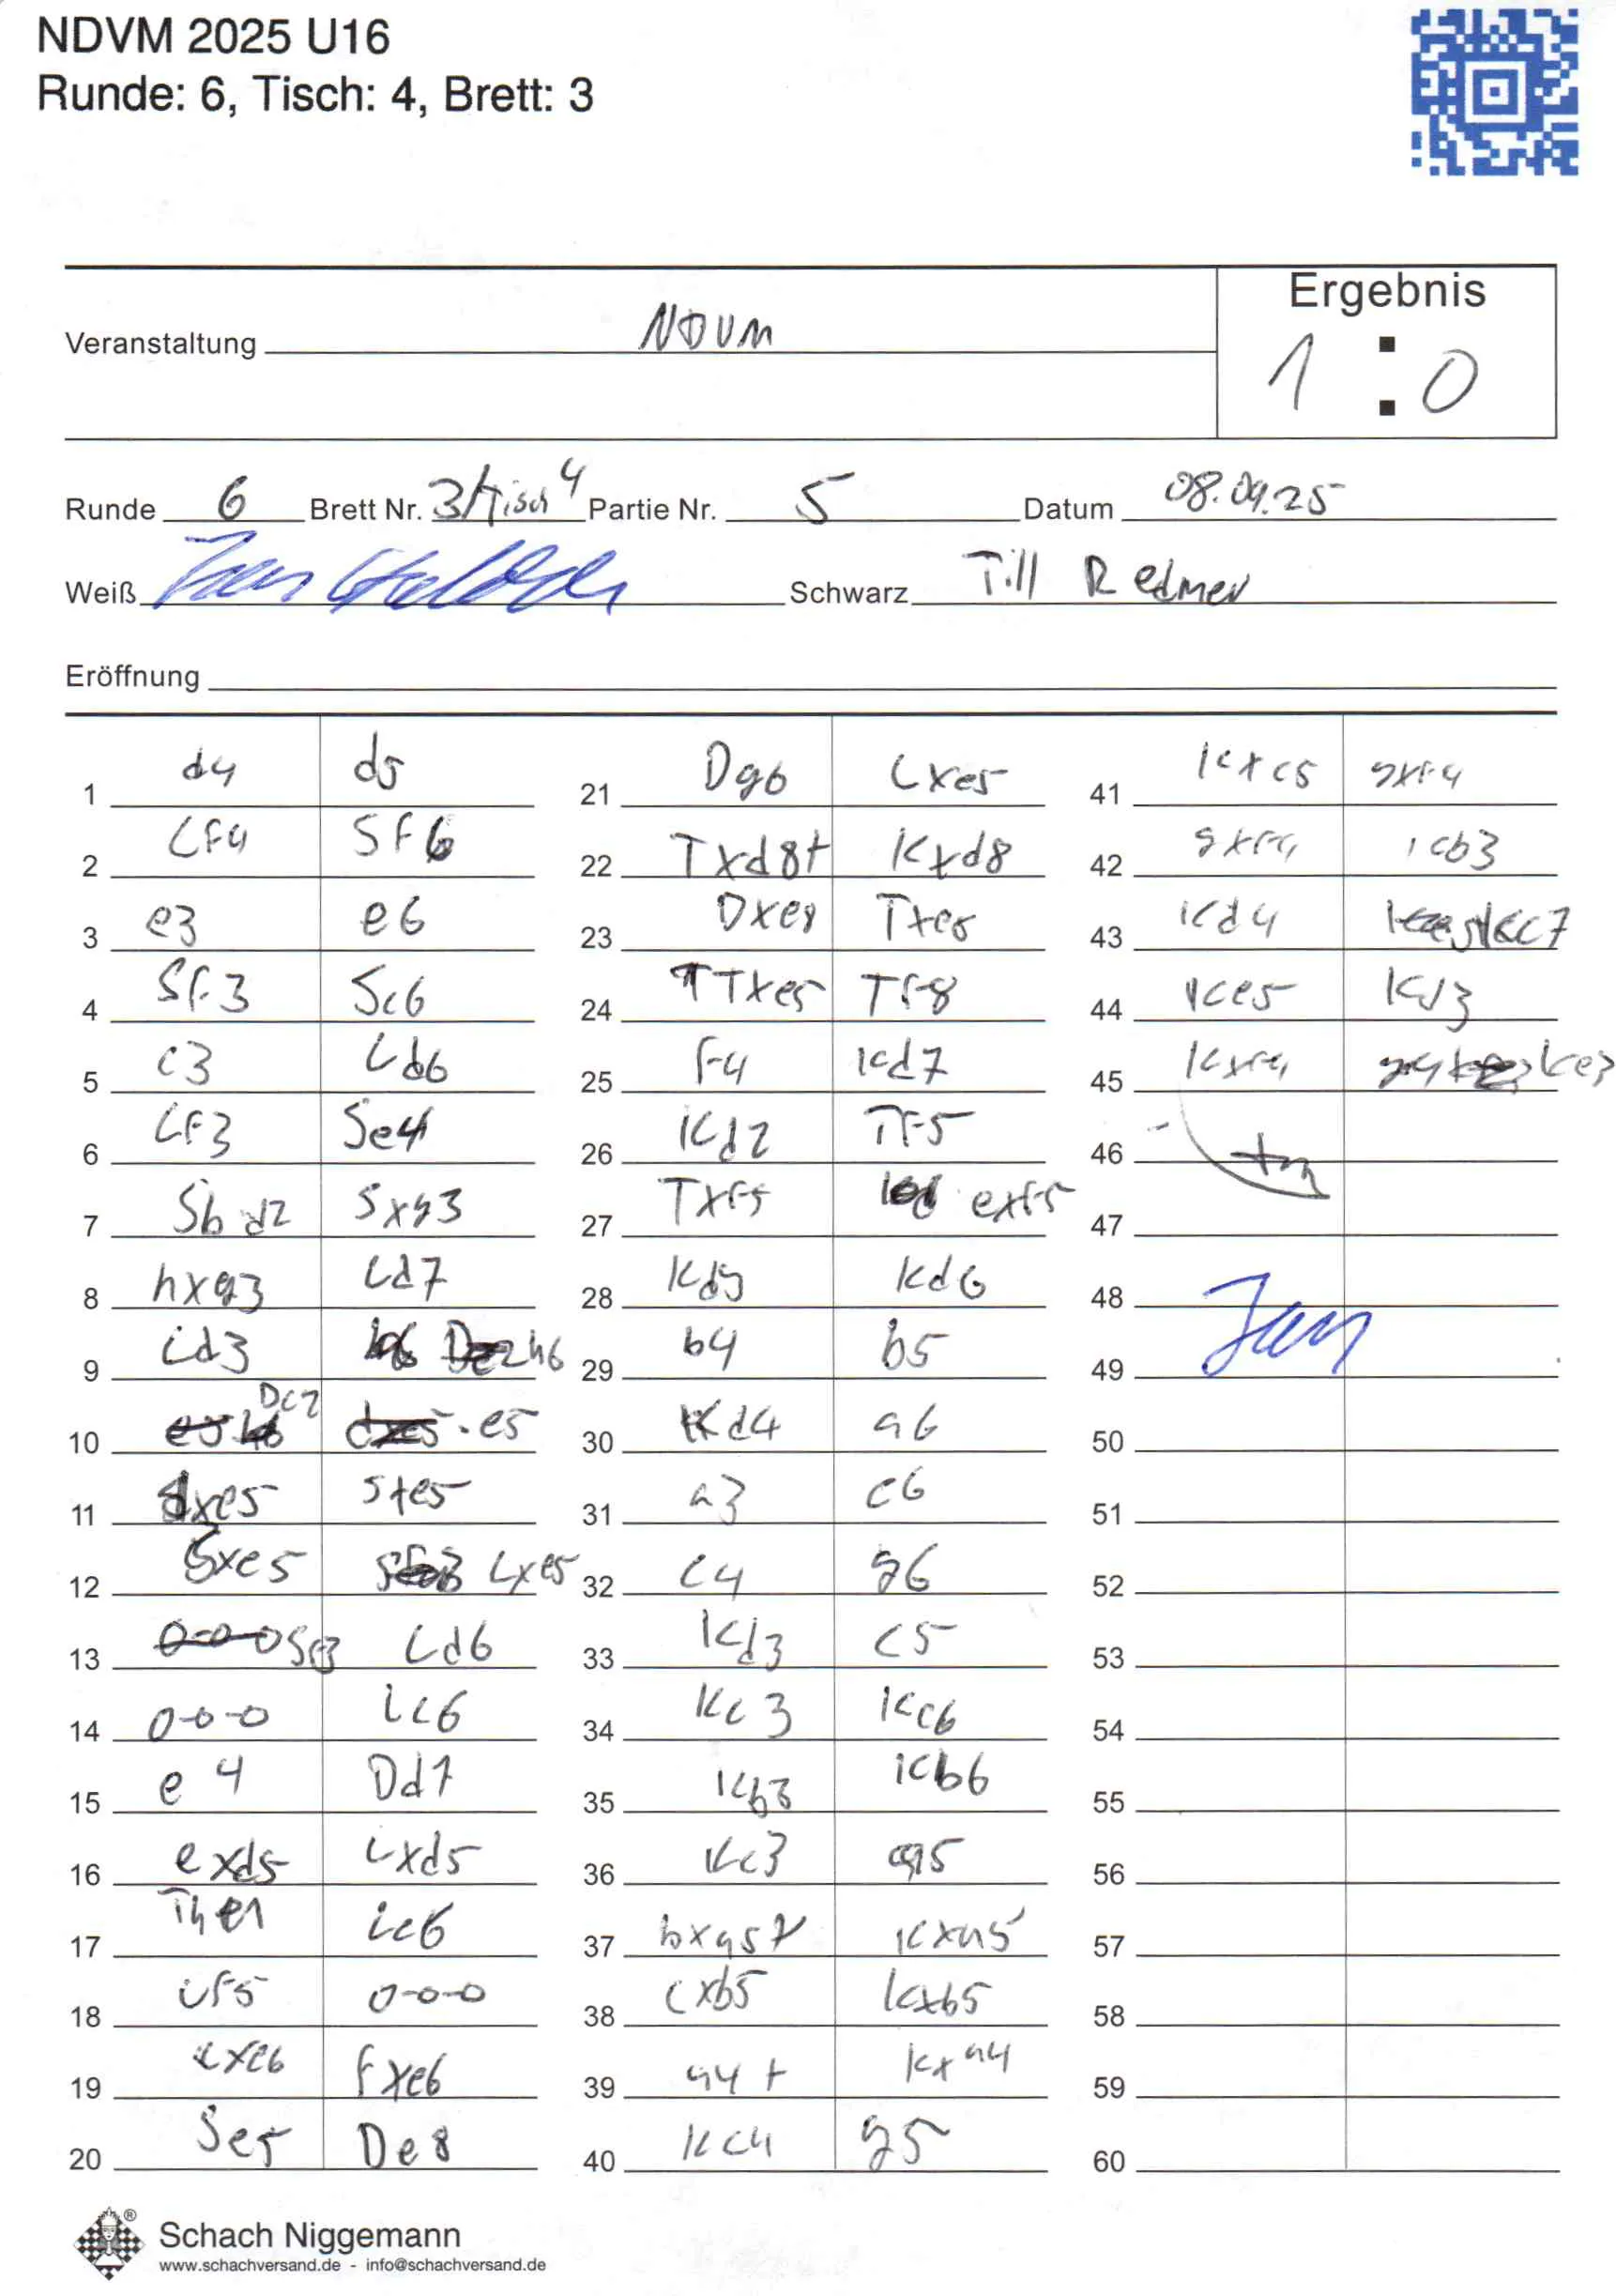 NDVM 2025 U16
Runde: 6, Tisch: 4, Brett: 3
Ergebnis
Veranstaltung NDVM
1 : 0
Runde 6 Brett Nr. 3/Tisch 4 Partie Nr. 5 Datum 08.09.25
Weiß Schwarz Till Redmer
Eröffnung
1 d4 d5
2 Lf4 Sf6
3 e3 e6
4 Sf3 Sc6
5 c3 Ld6
6 Lf3 Se4
7 Sbd2 Sxg3
8 hxg3 Ld7
9 Ld3 h6
10 Dc2 e5
11 dxe5 Sxe5
12 Sxe5 Lxe5
13 Sf3 Ld6
14 0-0-0 Lc6
15 e4 Dd7
16 exd5 Lxd5
17 The1 Lc6
18 Lf5 0-0-0
19 Lxe6 fxe6
20 Se5 De8
21 Dg6 Lxe5
22 Txd8+ Kxd8
23 Dxe8 Txe8
24 Txe5 Tf8
25 f4 Kd7
26 Kd2 Tf5
27 Txf5 exf5
28 Kd3 Kd6
29 b4 b5
30 Kd4 a6
31 a3 c6
32 c4 g6
33 Kd3 c5
34 Kc3 Kc6
35 Kb3 Kb6
36 Kc3 a5
37 bxa5+ Kxa5
38 cxb5 Kxb5
39 a4+ Kxa4
40 Kc4 g5
41 Kxc5 gxf4
42 gxf4 Kb3
43 Kd4 Kc2
44 Ke5 Kd3
45 Kxf4 Ke3
46
47
48 Jan
49
50
51
52
53
54
55
56
57
58
59
60
Schach Niggemann
www.schachversand.de - info@schachversand.de